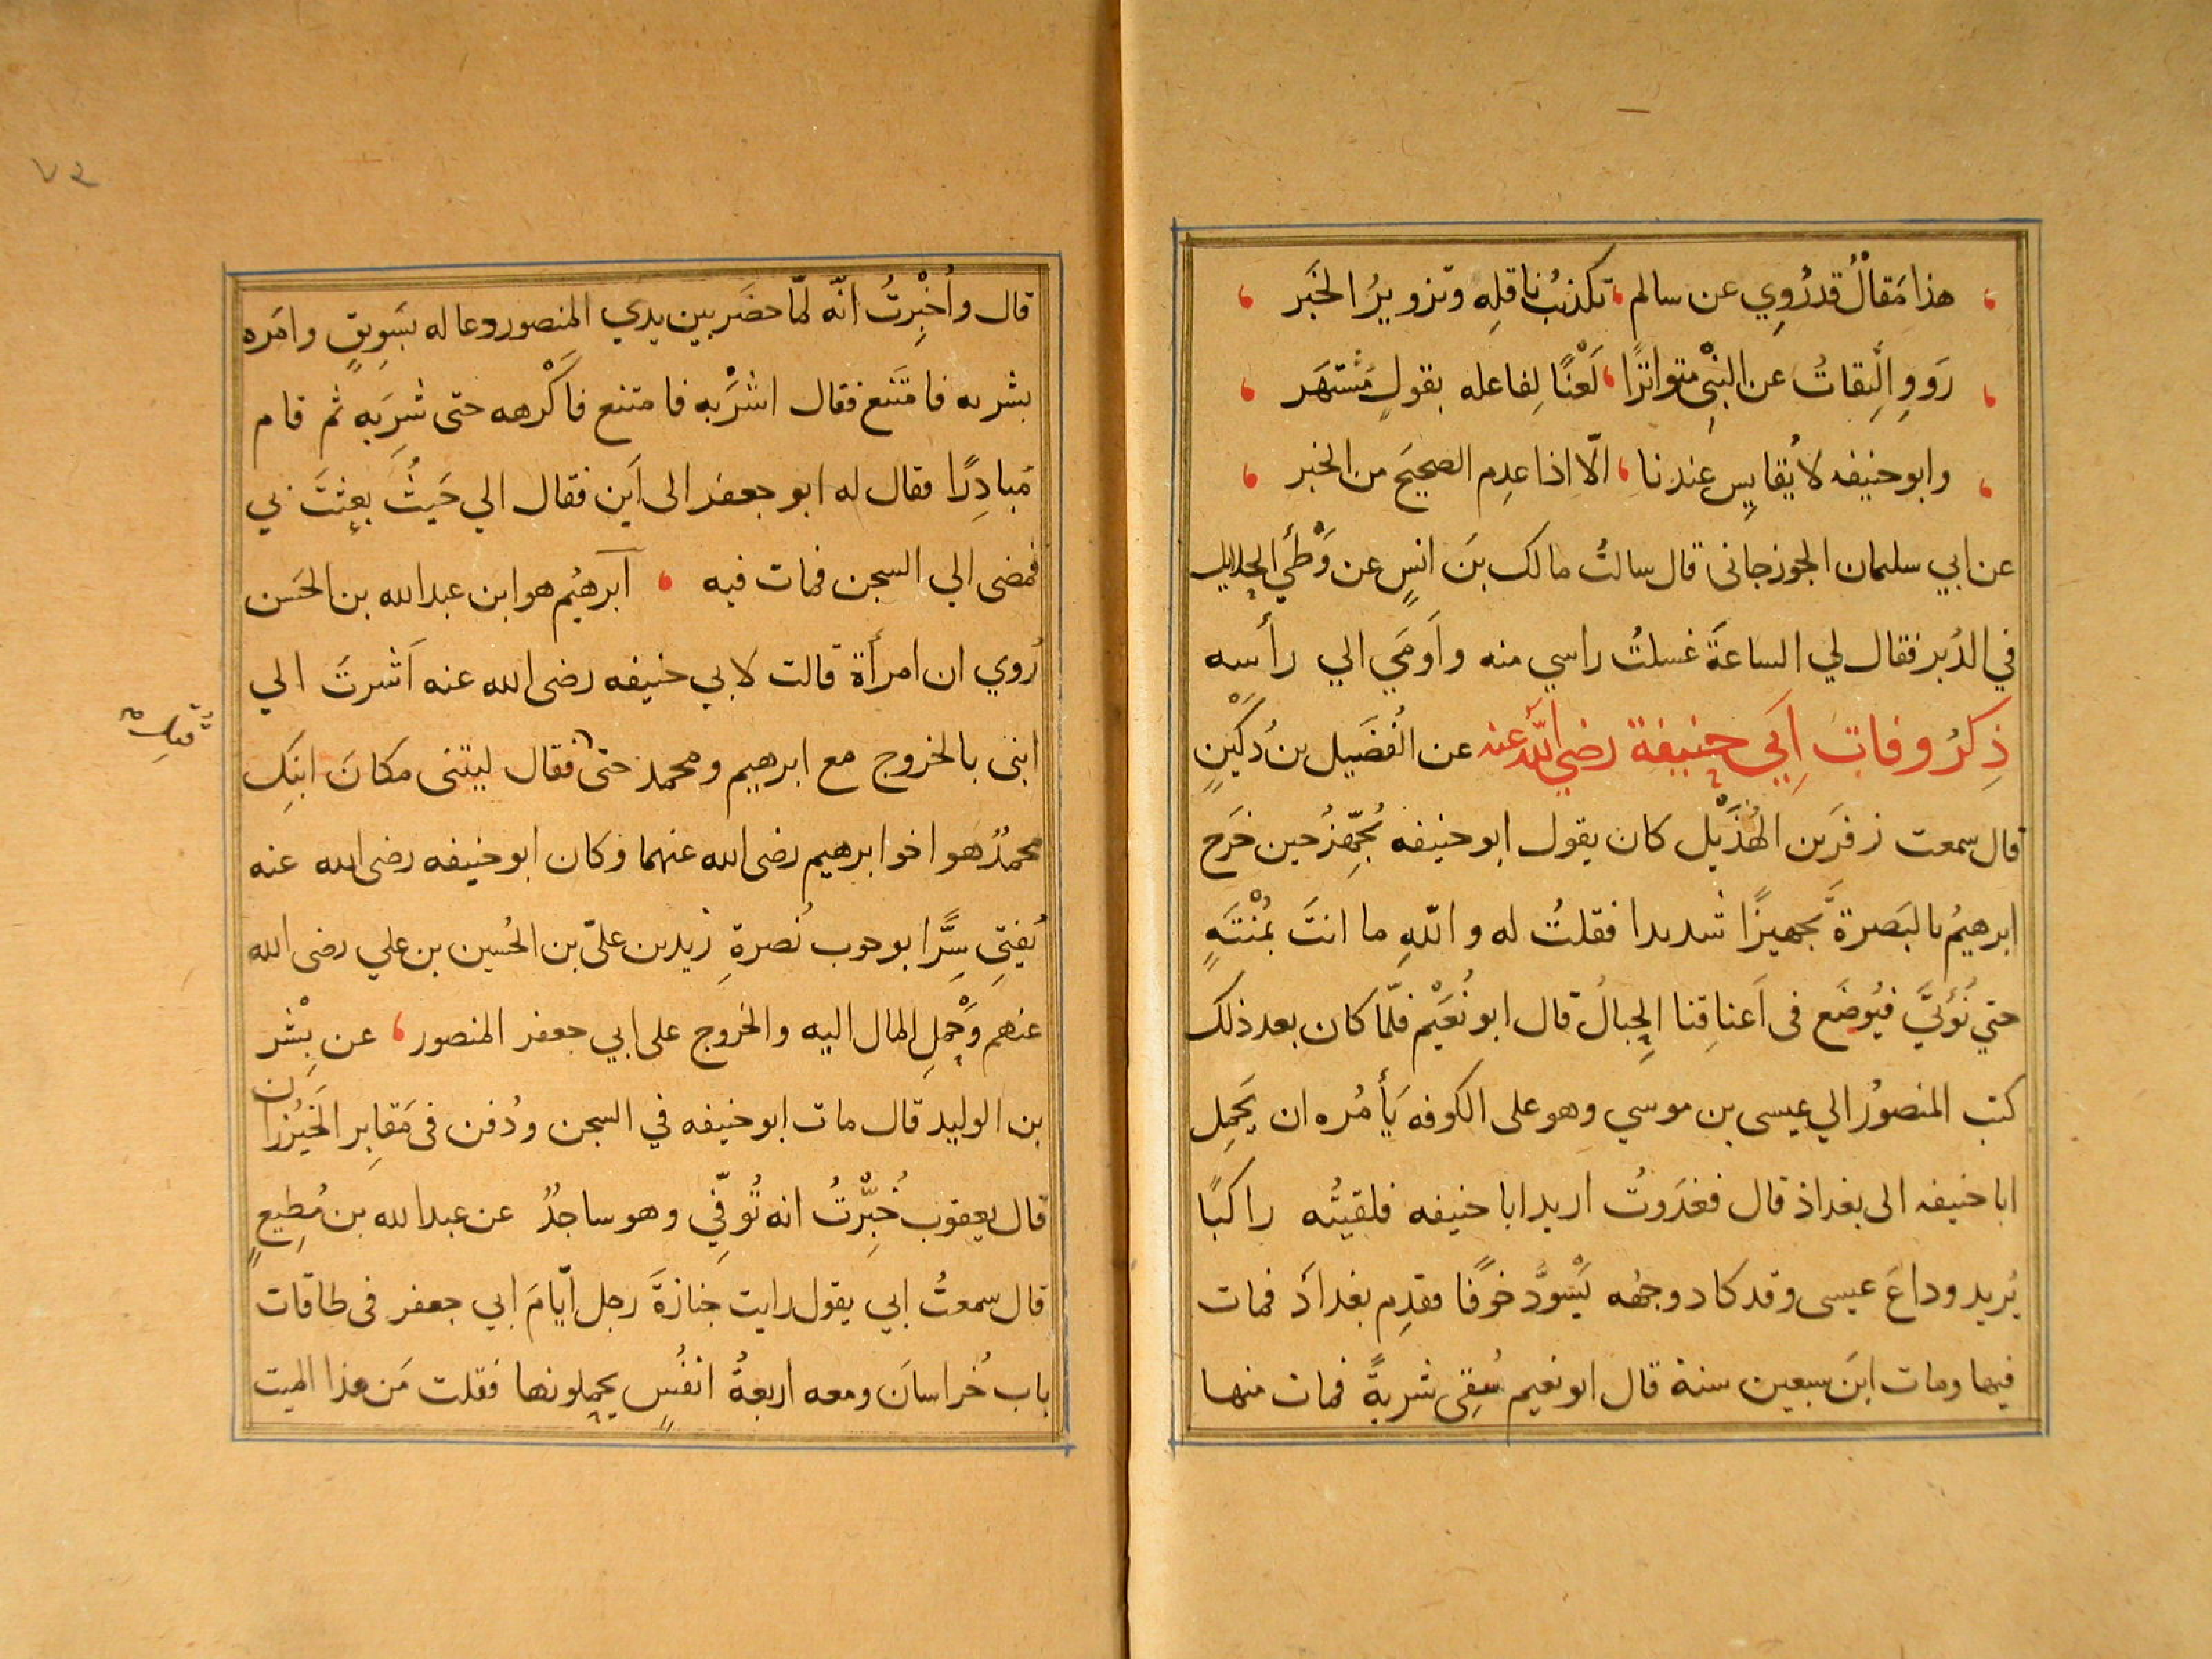 هذا مَقالٌ قد رُوِي عن سالم ، تكذيبُ ناقلِه وتزويرُ الخَبَر
رَووِ الثِقاتُ عن النبيّ متواترًا ، لَعْنًا لِفاعله بقولٍ مُشْتهَر
وابو حنيفه لا يُقايِس عندنا ، الّا اذا عدِم الصحيحَ من الخبر
عن ابي سليمان الجوزجانى قال سالتُ مالك بنَ انسٍ عن وَطْيِ الحلايل
في الدُبر فقال لي الساعةَ غسلتُ راسي منه واَومَي الي رأسه
ذِكرُ وفات اَبي حنيفة رضي اللّٰه عنه عن الفُضَيل بن دُكَيْنٍ
قال سمعت زفرَ بن الهُذَيْل كان يقول ابو حنيفه يُجَهِّزُ حين خَرَج
ابرهيمُ بالبَصرةِ تَجهيزًا شديدا فقلتُ له و اللّهِ ما انتَ بمُنْتَهٍ
حتي نُؤتيَ فيُوضَع فى اَعناقِنا الحِبالُ قال ابو نُعَيْم فلمّا كان بعد ذلك
كتب المنصورُ الي عيسى بن موسي وهو على الكوفه يَأمُره ان يَحمِل
ابا حنيفه الى بغداذ قال فغدَوتُ اريد ابا حنيفه فلقيتُه راكبًا
يُريد وداعَ عيسى وقد كاد وجهُه يَسْوَدُّ خوفًا فقدِم بغداذ فمات
فيها ومات ابنَ سبعين سنة قال ابو نعيم سُقِى شربةً فمات منها
٧٢
قال واُخْبِرتُ انّه لمّا حضَر بين يدي المنصور دعا له بسَوِيقٍ وامَره
بشربه فامتَنع فقال اشْرَبه فامتنع فاَكْرهه حتى شرِبَه ثم قام
مُبادِرًا فقال له ابو جعفر الى اَين فقال الي حَيثُ بعثتَ بي
فمضى الي السجن فمات فيه ، آبرهيُم هو ابن عبد الله بن الحَسن
رُوي ان امرأة قالت لابي حنيفه رضى الله عنه اَشرتَ الي
ابنى بالخروج مع ابرهيم ومحمد حتى فقال ليتنى مكانَ ابنَكِ
قُتِل
محمدٌ هو اخو ابرهيم رضى الله عنهما وكان ابو حنيفه رضى الله عنه
يُفتِي سِرًّا بوجوب نُصرةِ زيد بن عليّ بن الحُسين بن علي رضى الله
عنهم وَحَمْلِ المال اليه والخروج على ابي جعفر المنصور ، عن بِشْر
بن الوليد قال مات ابو حنيفه في السجن ودُفن فى مَقابِر الخَيْزُران
قال يعقوب خُبِّرتُ انه تُوُفّي وهو ساجدٌ عن عبد الله بن مُطِيعٍ
قال سمعتُ ابي يقول رايت جنازةَ رجل ايّامَ ابي جعفر فى طاقات
باب خُراسانَ ومعه اربعةُ انفُسٍ يحملونها فقلت مَن هذا الميت